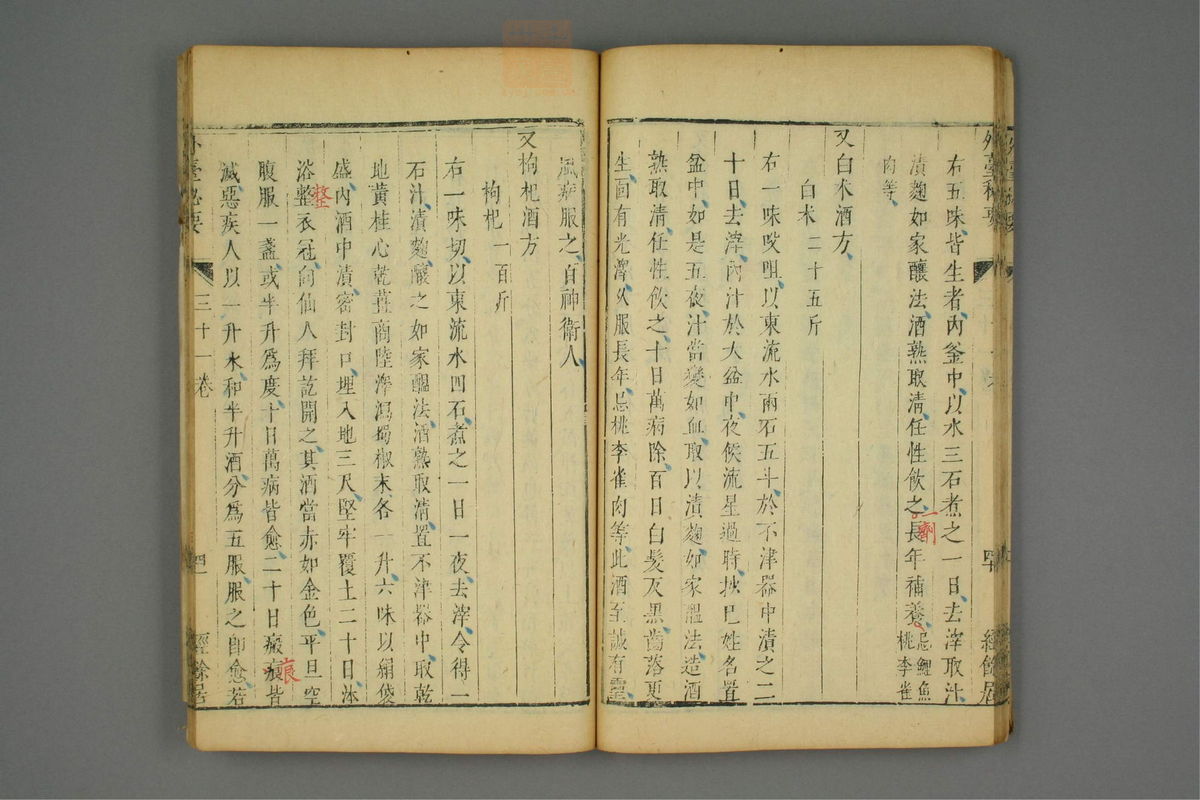 外臺秘要
右五味皆生者內釜中以水三石煮之一日去滓取汁
漬麴如家釀法酒熟取清任性飲之長年補養忌鯉魚桃李雀
一劑
肉等
又白朮酒方
白朮二十五斤
右一味㕮咀以東流水兩石五斗於不津器中漬之二
十日去滓內汁於大盆中夜候流星過時抄已姓名置
盆中如是五夜汁當變如血取以漬麴如家醞法造酒
熟取清任性飲之十日萬病除百日白髮反黑齒落更
生面有光澤久服長年忌桃李雀肉等此酒至誠有靈
風病服之百神衛人
又枸杞酒方
枸杞一百斤
右一味切以東流水四石煮之一日一夜去滓令得一
石汁漬麴釀之如家醞法酒熟取清置不津器中取乾
地黃桂心乾薑商陸澤瀉蜀椒末各一升六味以絹袋
盛內酒中漬密封口埋入地三尺堅牢覆土二十日沐
浴整衣冠向仙人拜訖開之其酒當赤如金色平旦空
整
腹服一盞或半升為度十日萬病皆愈二十日瘢痕皆
痕
滅惡疾人以一升水和半升酒分為五服服之即愈若
外臺秘要
三十一卷
經餘居